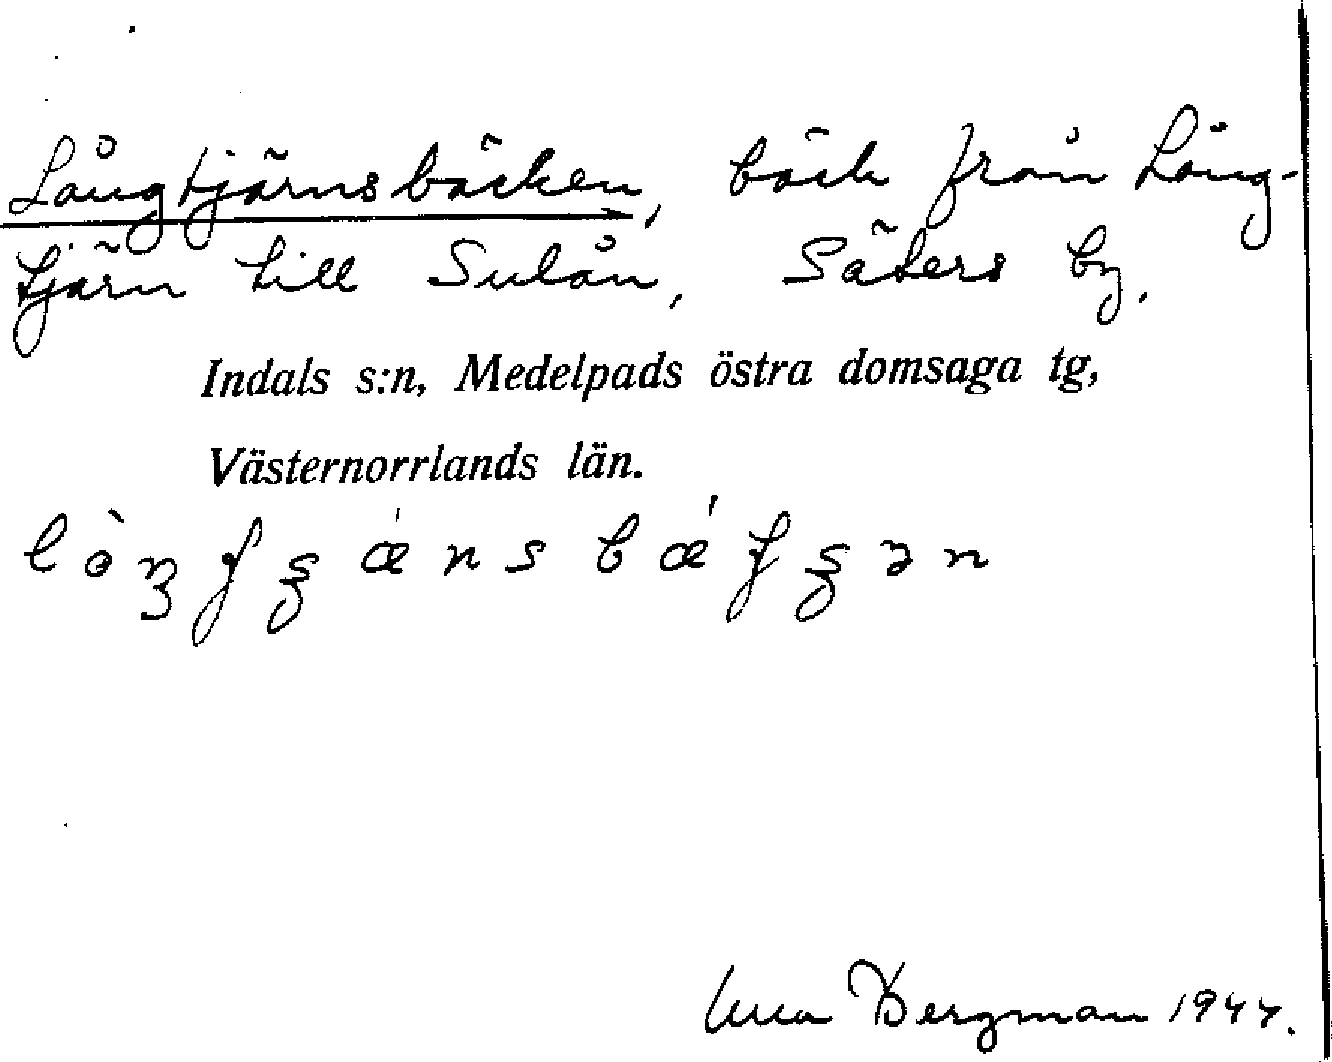 Långtjärnsbäcken, bäck från Lång-
tjärn till Sulån, Säters by.
Indals s:n, Medelpads östra domsaga tg,
Västernorrlands län.
Bergman 1944.